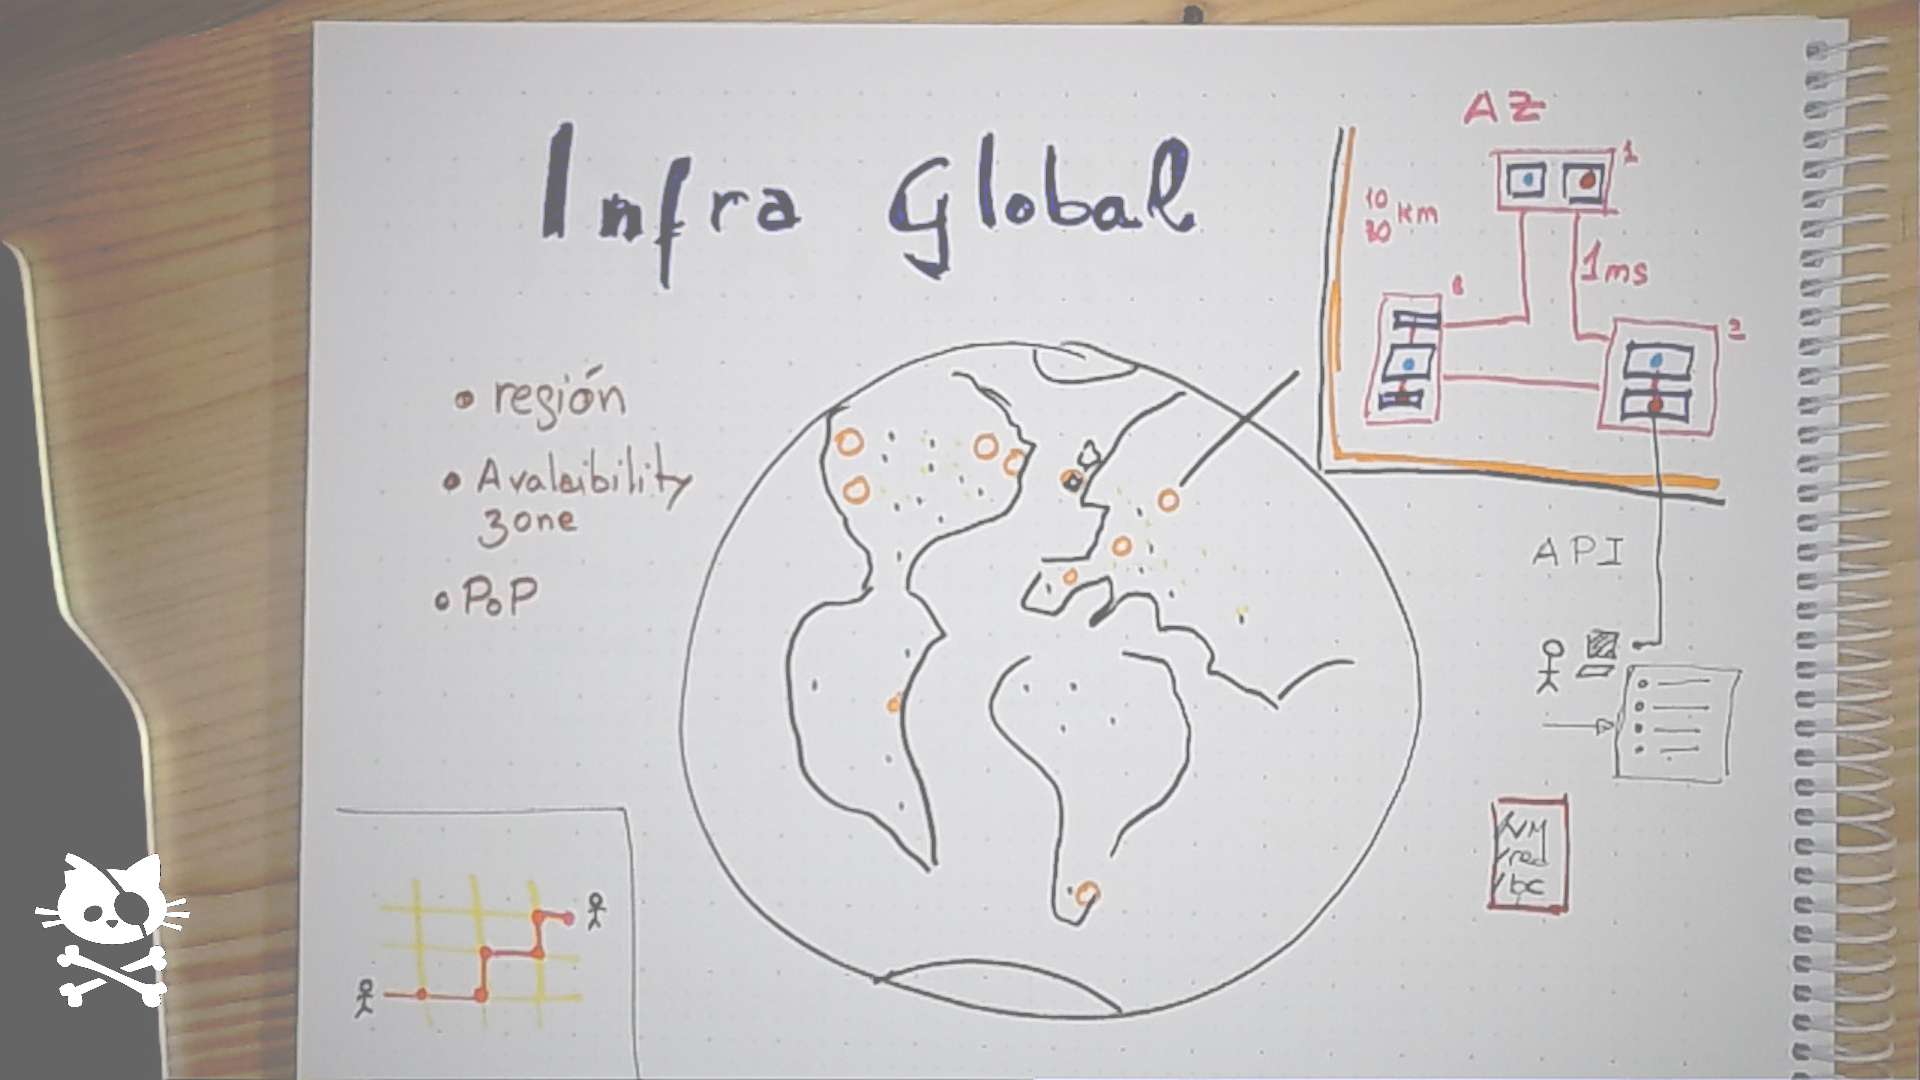 Infra Global
• región
• Avalaibility
zone
• PoP
AZ
1
10
30 km
1ms
2
API
VM
red
bc